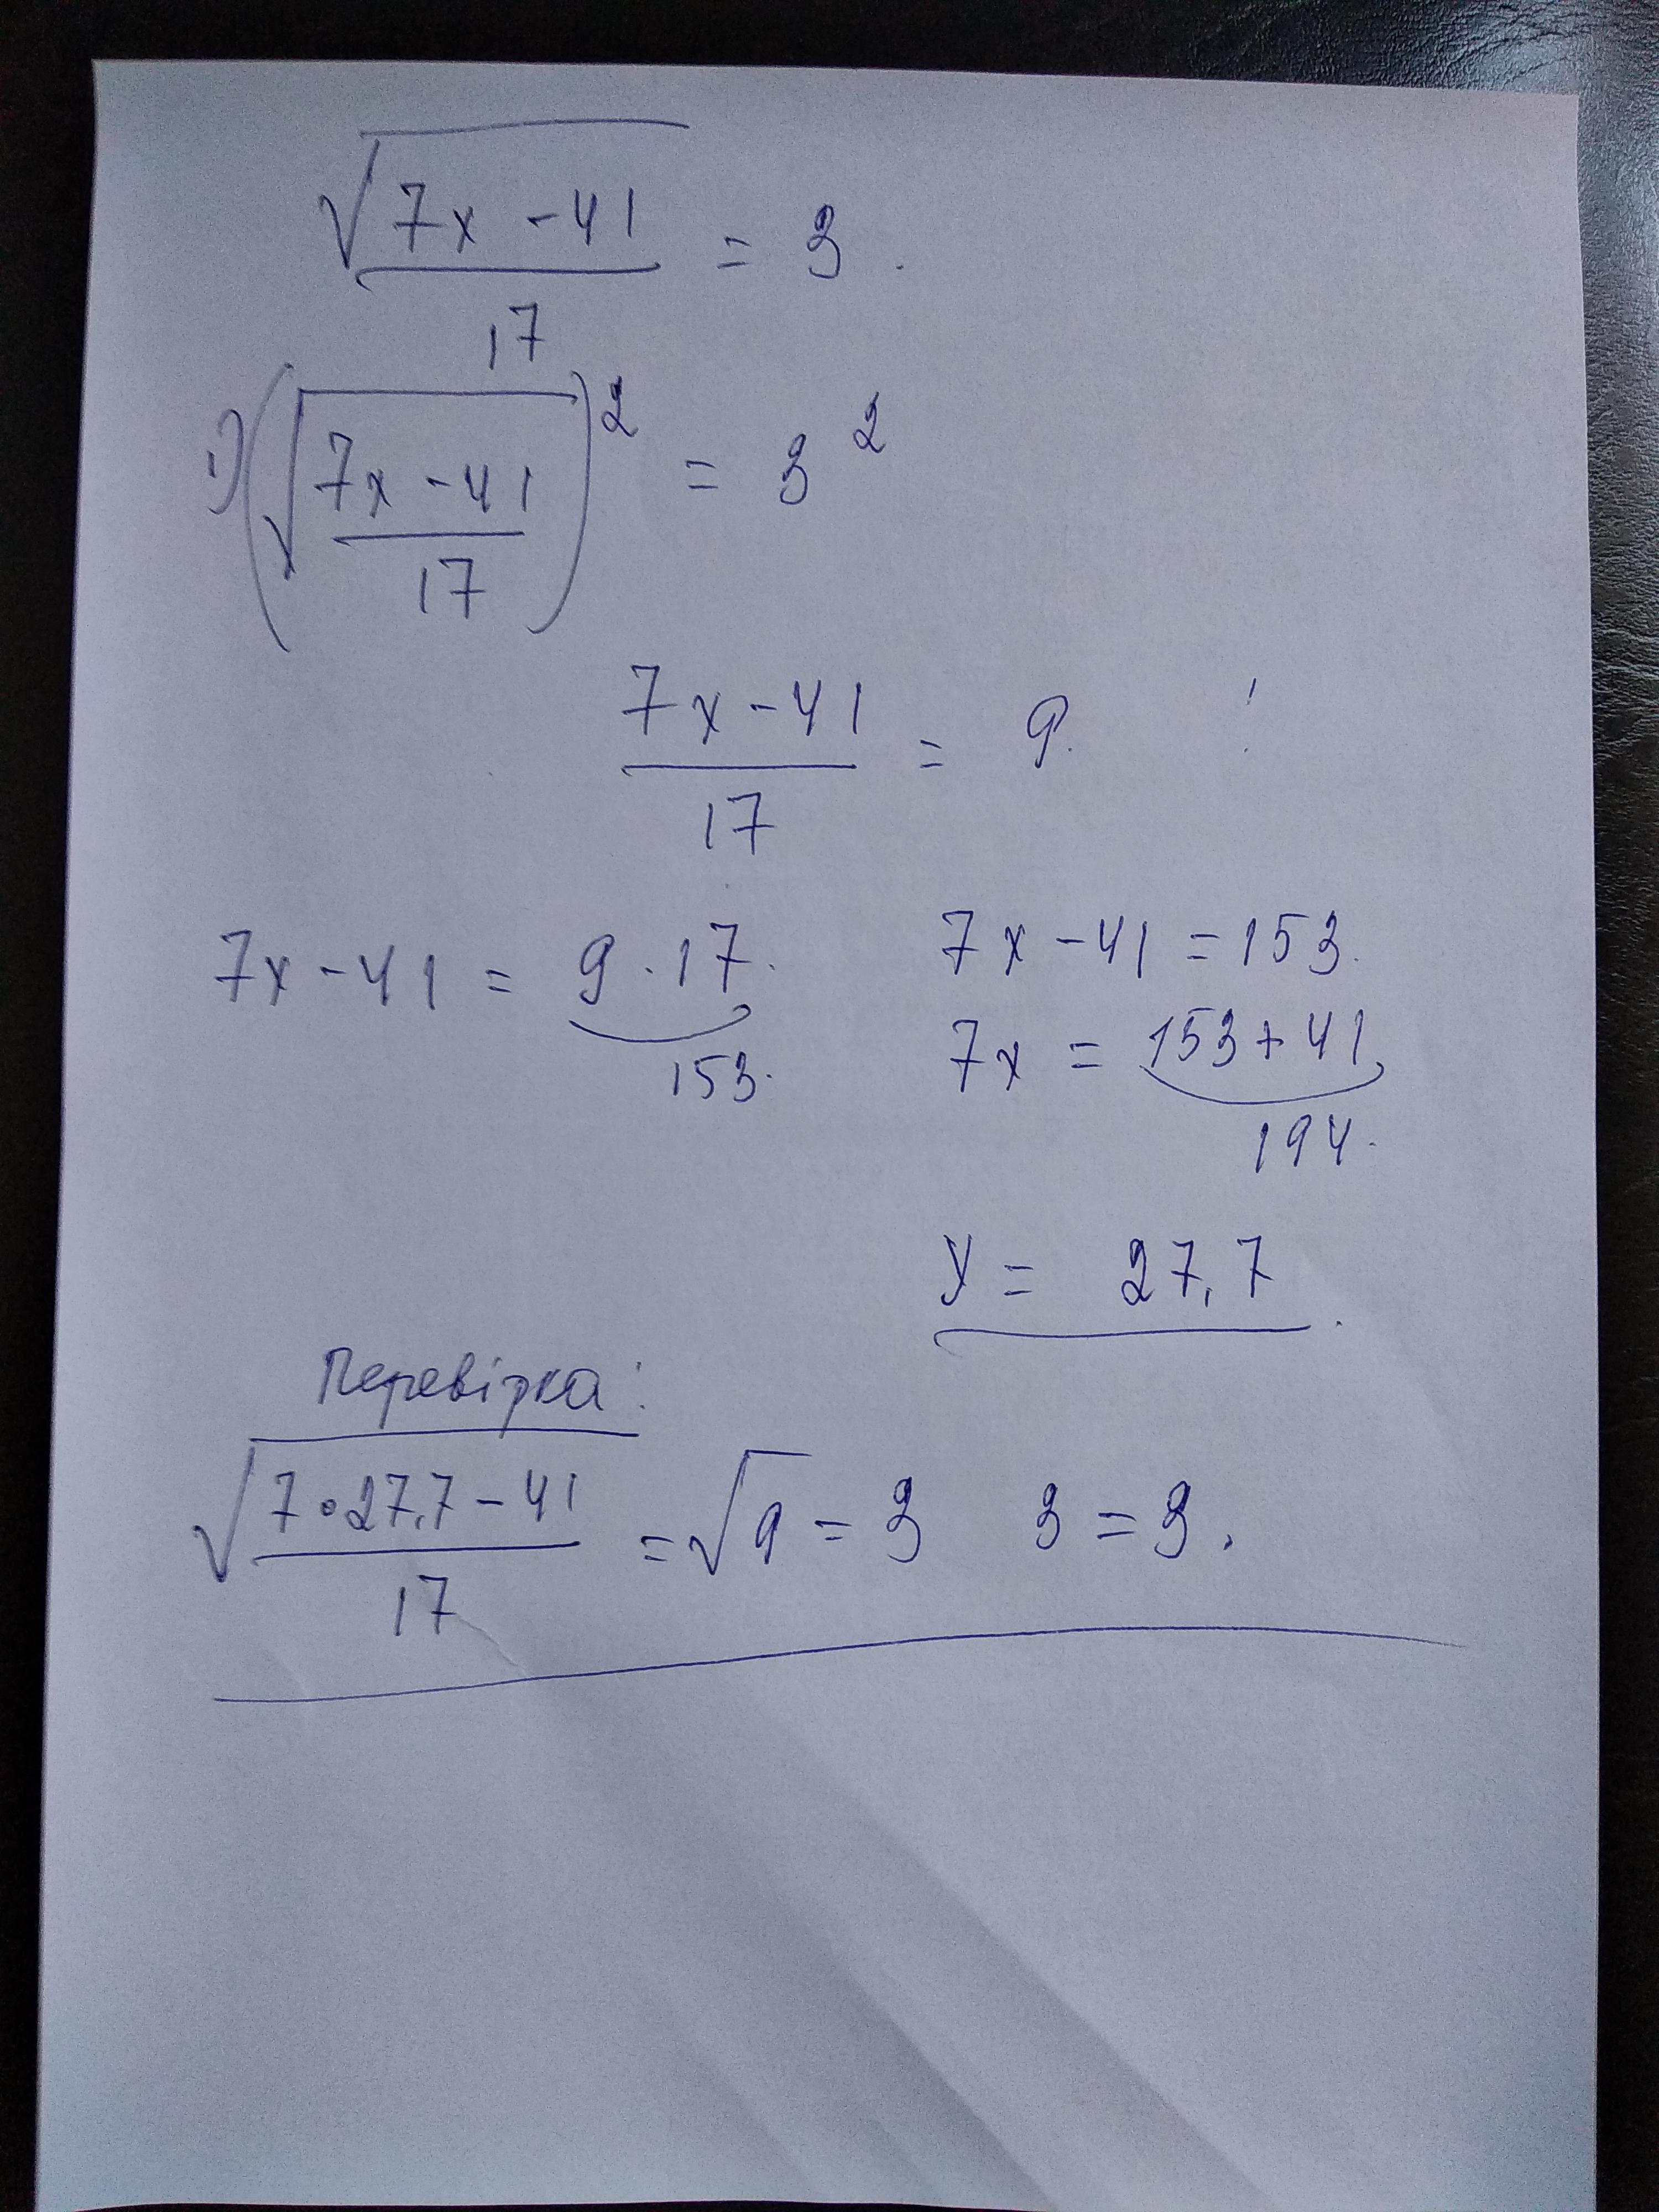 √((7x - 41)/17) = 3.
1) (√((7x - 41)/17))² = 3²
(7x - 41)/17 = 9.
7x - 41 = 9 · 17.
153.
7x - 41 = 153.
7x = 153 + 41
194.
x = 27,7.
Перевірка:
√((7•27,7 - 41)/17) = √9 = 3 3 = 3.